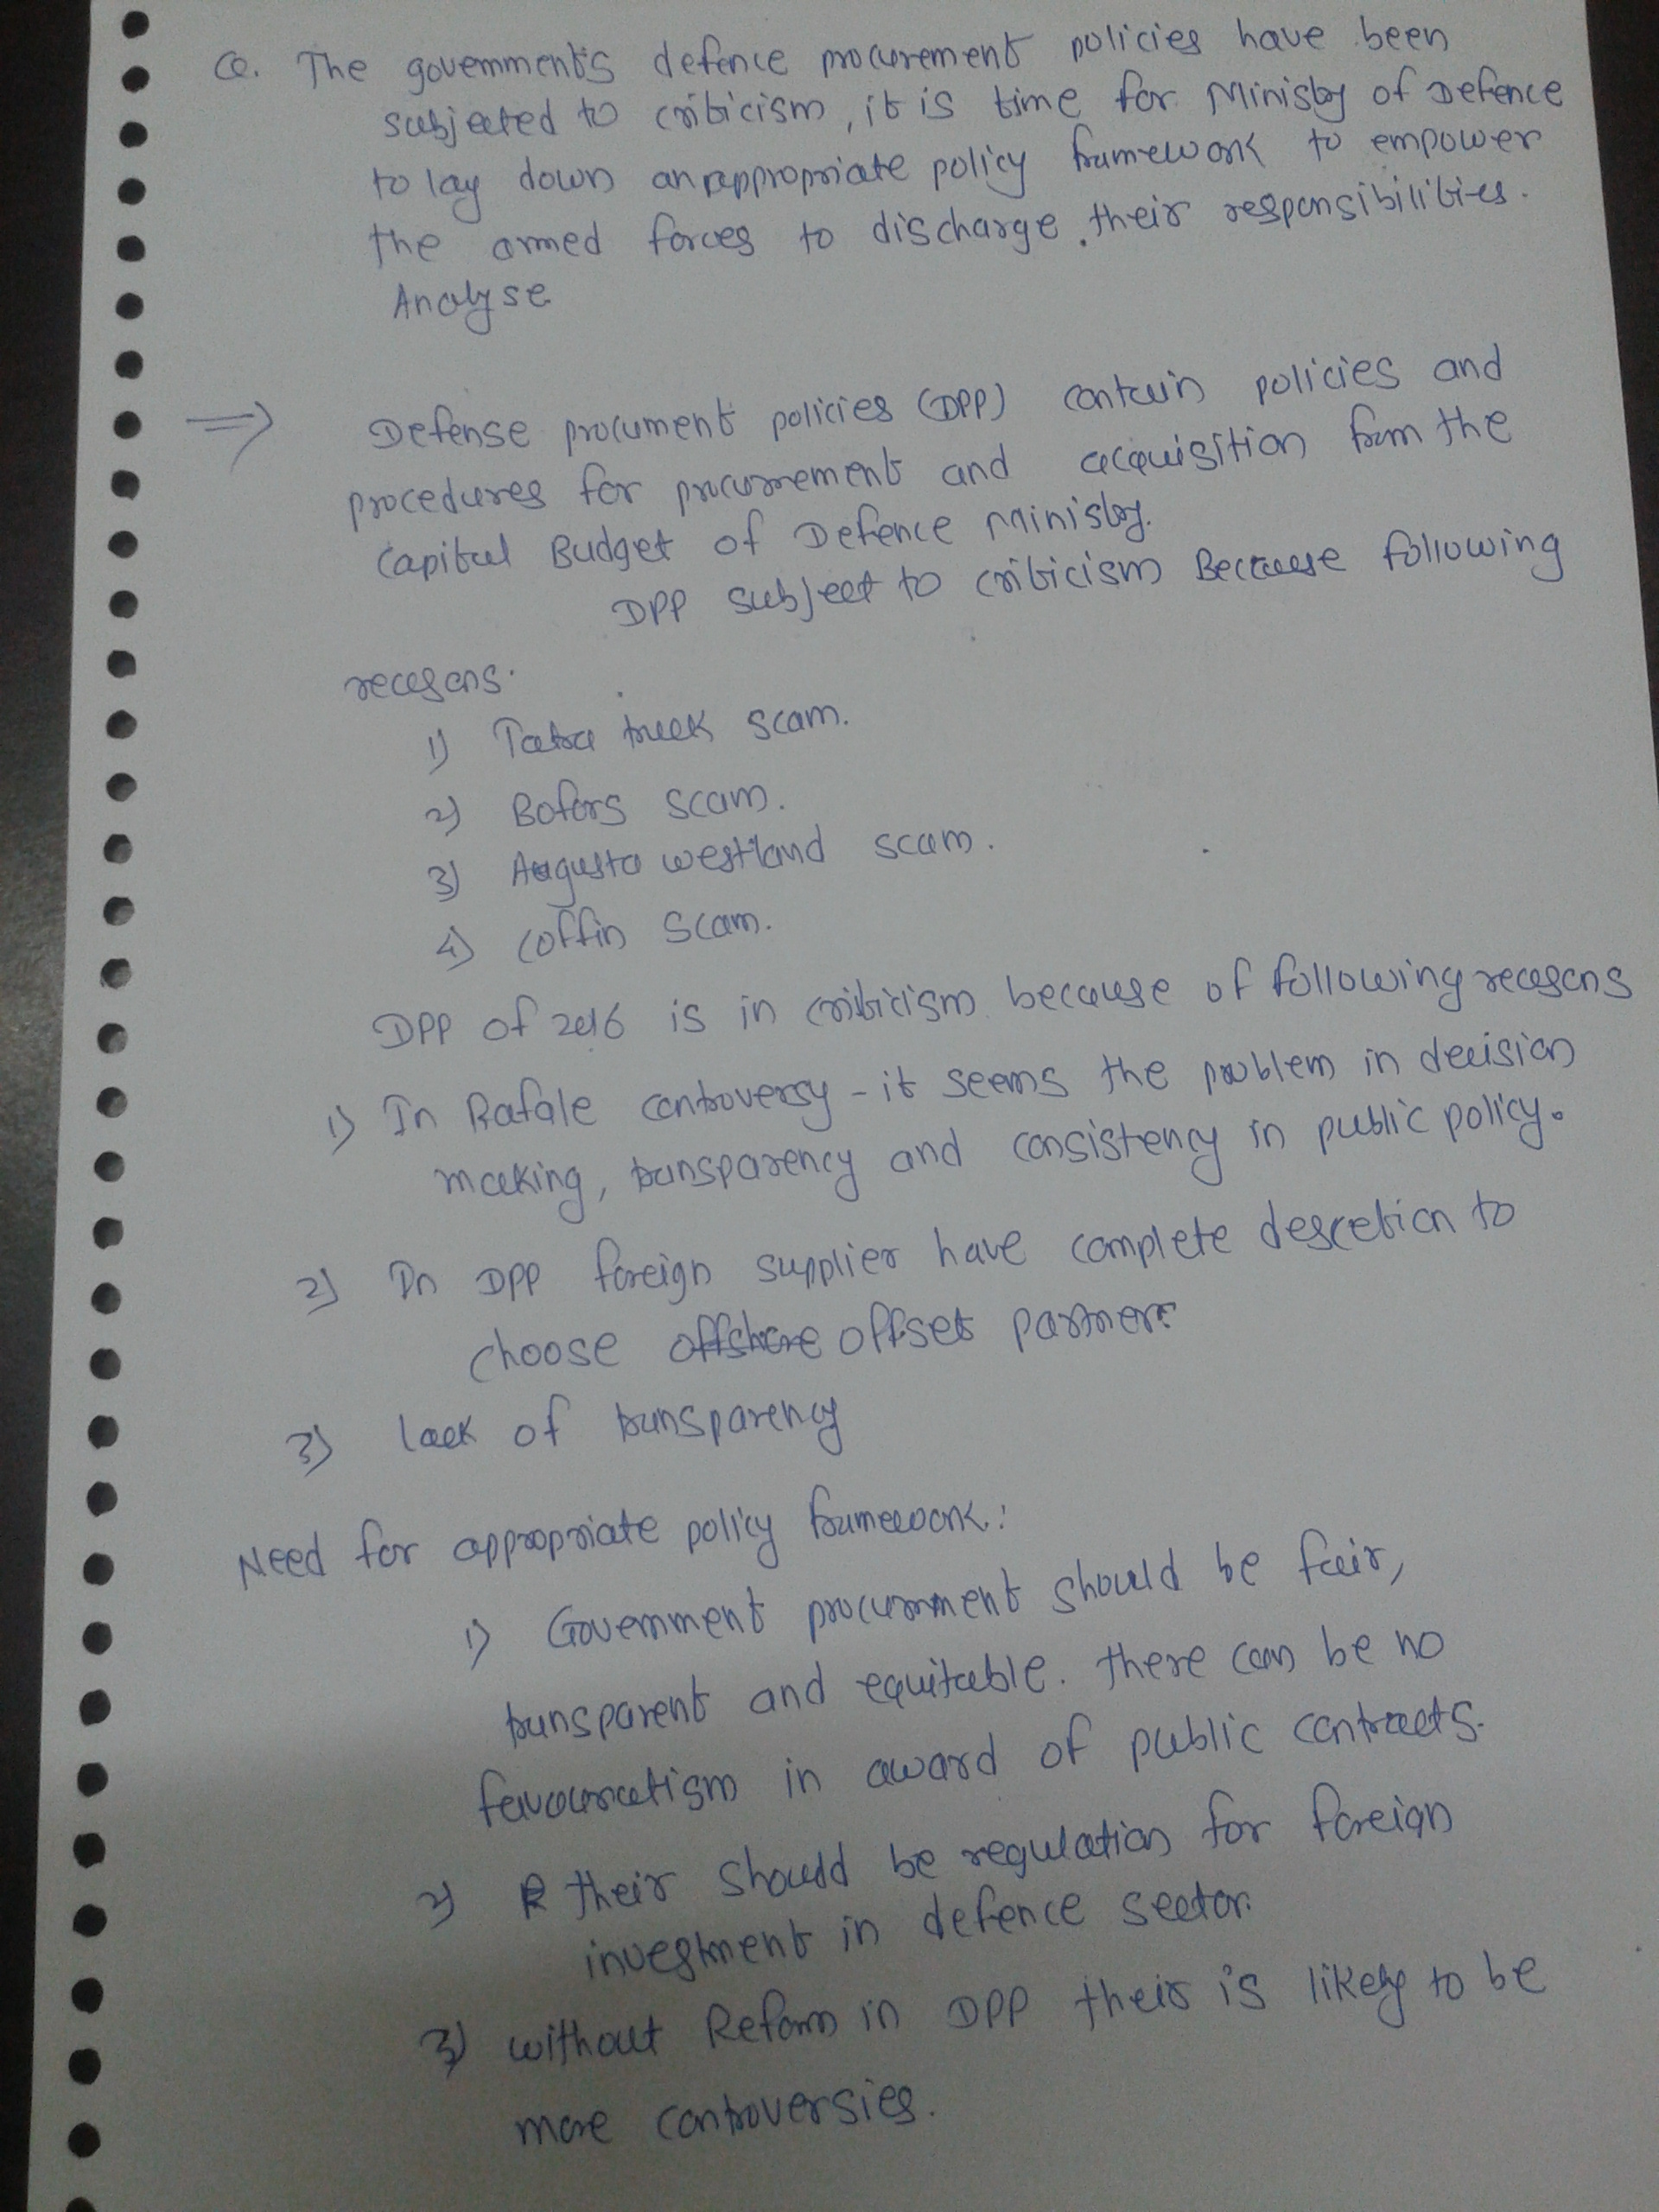 Q. The government's defence procurement policies have been
subjected to criticism, it is time for Ministry of Defence
to lay down an appropriate policy framework to empower
the armed forces to discharge their responsibilities.
Analyse
⇒ Defense procument policies (DPP) contain policies and
procedures for procurement and acquisition from the
Capital Budget of Defence Ministry.
DPP subject to criticism Because following
reasons.
1) Tatra truck scam.
2) Bofors scam.
3) Augusta westland scam.
4) coffin scam.
DPP of 2016 is in criticism because of following reasons
1) In Rafale controversy - it seems the problem in decision
making, transparency and consistency in public policy.
2) In DPP foreign supplier have complete descretion to
choose offshore offset partner.
3) lack of transparency
Need for appropriate policy framework:
1) Government procurnment should be fair,
transparent and equitable. there can be no
favouratism in award of public contracts.
2) R their should be regulation for foreign
investment in defence sector.
3) without Reform in DPP their is likely to be
more controversies.